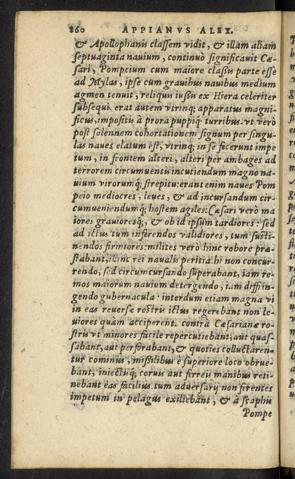 260 APPIANVS ALEX.
& Apollophanis classem vidit, & illam aliam
septuaginta nauium, continuò significauit Cæ-
sari, Pompeium cum maiore classis parte esse
ad Mylas, ipse cum grauibus nauibus medium
agmen tenuit, reliqui iussu ex Hiera celeriter
subsequi. erat autem vtrinq; apparatus magni-
ficus, impositis à prora puppiq; turribus. vt verò
post solennem cohortationem signum per singu-
las naues elatum est, vtrinq; in se fecerunt impe
tum, in frontem alteri, alteri per ambages ad
terrorem circumeuntiu incutiendum magno na-
uium virorumq; strepitu: erant enim naues Pom
peio mediocres, leues, & ad incursandum cir-
cumueniendumq; hostem agiles: Cæsari verò ma
iores grauioresq;, & ob id ipsum tardiores: sed
ad ictus tum inferendos validiores, tum susti-
nendos firmiores: milites verò hinc robore præ-
stabant, illinc rei naualis peritia. hi non concur-
rendo, sed circumcursando superabant, iam re-
mos maiorum nauium detergendo, iam diffrin-
gendo gubernacula: interdum etiam magna vi
in eas reuersæ rostris ictus regerebant non le-
uiores quàm acciperent. contrà Cæsarianæ ro-
stris vt minores facile repercutiebant, aut quas-
sabant, aut perforabant, & quoties colluctaren-
tur cominus, missilibus è superiore loco obrue-
bant, iniectisq; coruis aut ferreis manibus reti-
nebant eas facilius. tum aduersarij non ferentes
impetum in pelagus exiliebant, & à scaphis
Pompe